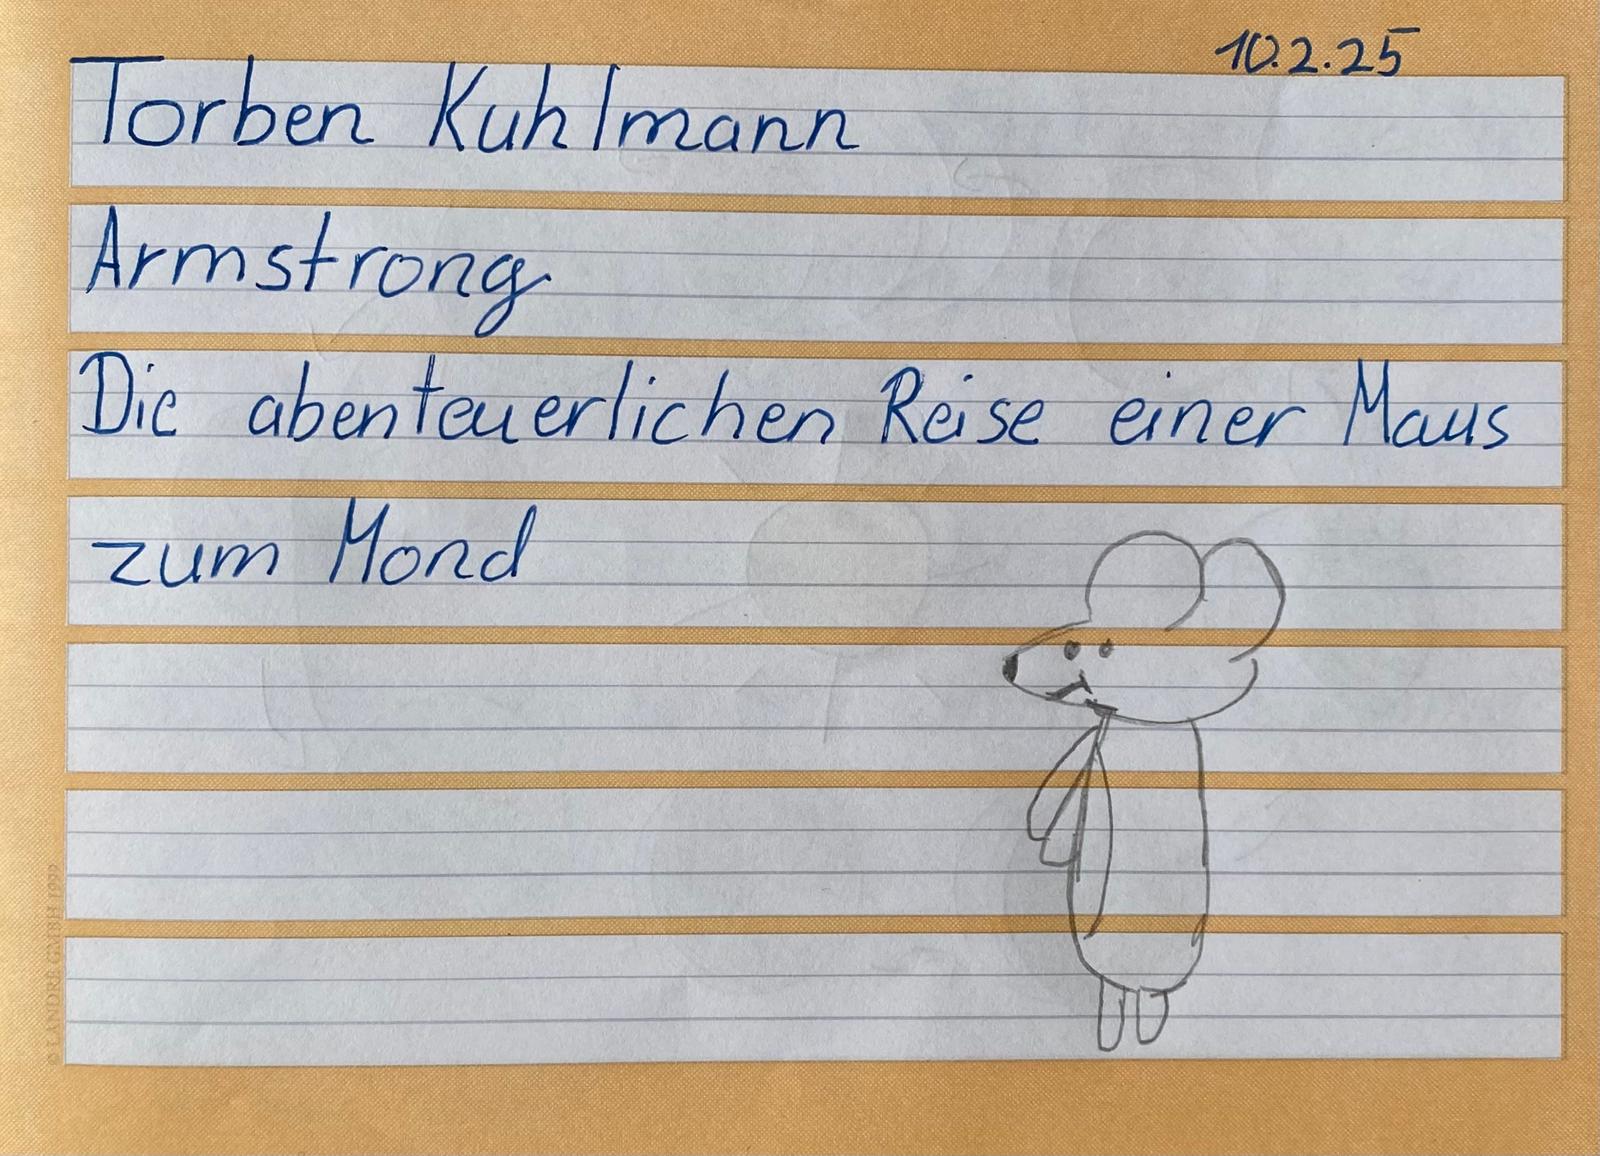 10.2.25
Torben Kuhlmann
Armstrong
Die abenteuerlichen Reise einer Maus
zum Mond
© LANDRÉ GMBH 1999